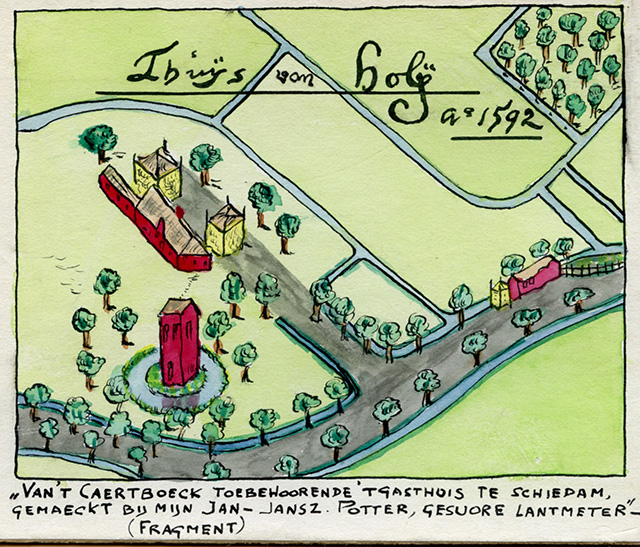 Thuijs van Holÿ
Aº 1592
„VAN'T CAERTBOECK TOEBEHOORENDE 'TGASTHUIS TE SCHIEDAM,
GEMAECKT BIJ MIJN JAN-JANSZ. POTTER, GESUORE LANTMETER"-
(FRAGMENT)